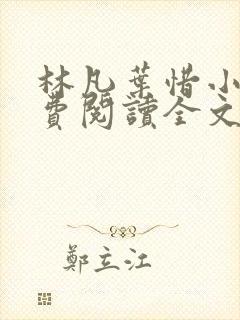 林凡葉惜小
費閱讀全文
鄭立江